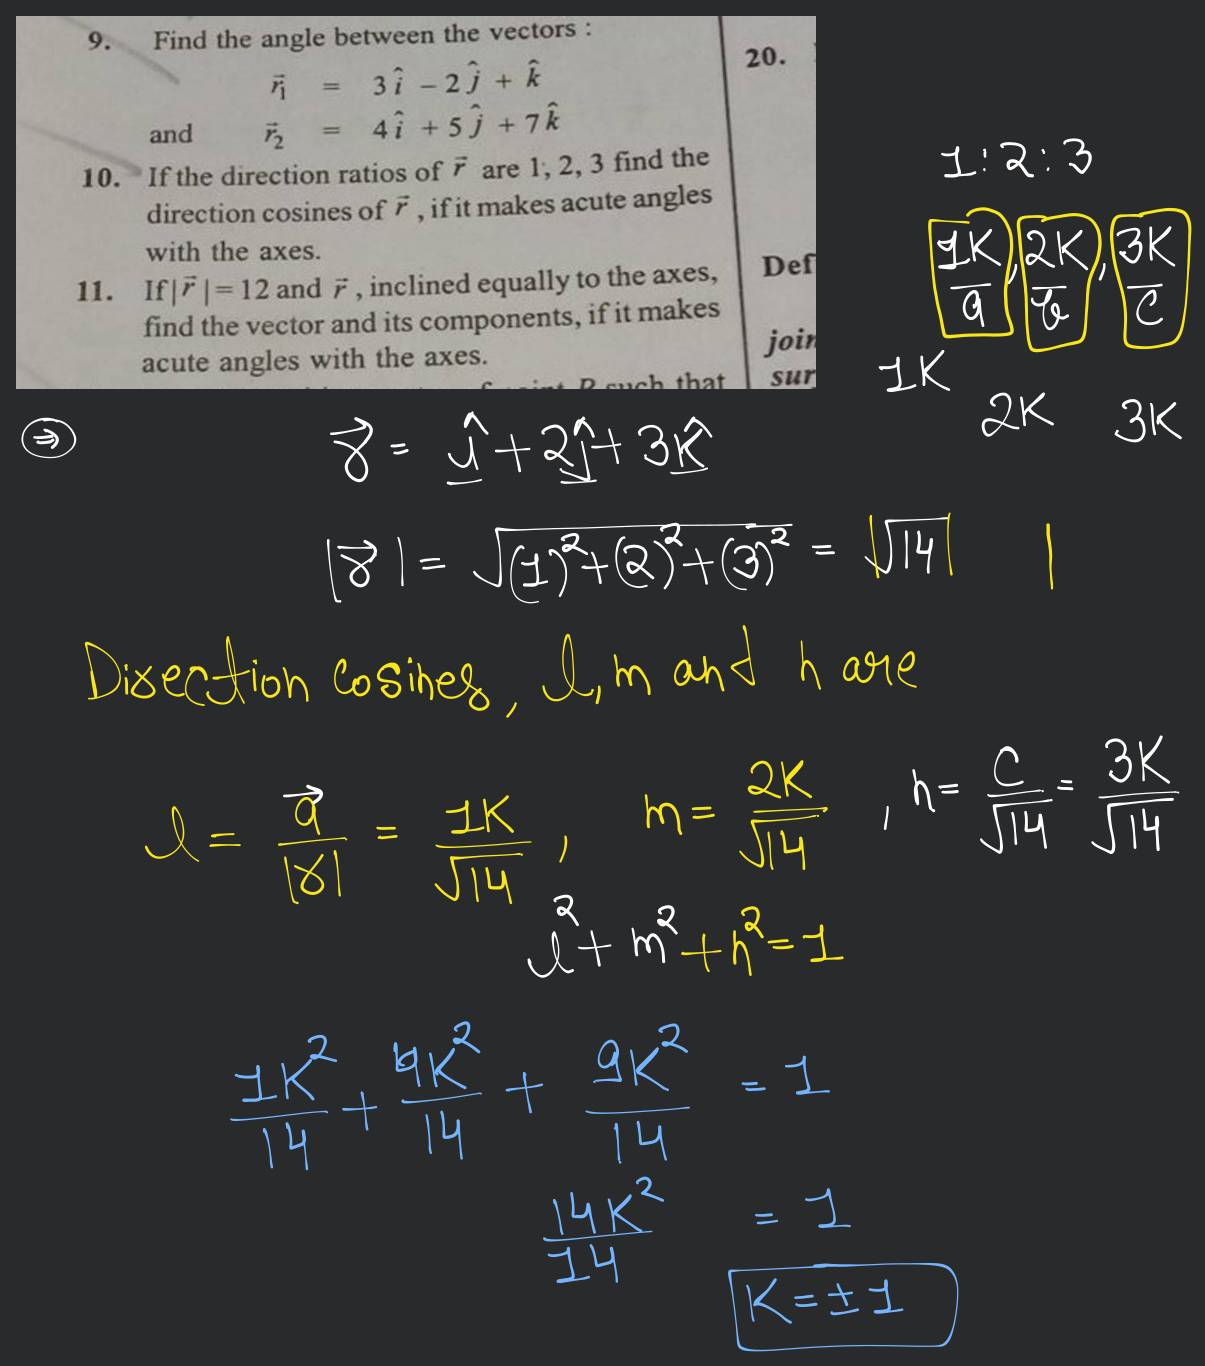 9. Find the angle between the vectors :
r⃗₁ = 3î – 2ĵ + k̂
and r⃗₂ = 4î + 5ĵ + 7k̂
10. If the direction ratios of r⃗ are 1, 2, 3 find the
direction cosines of r⃗ , if it makes acute angles
with the axes.
11. If |r⃗ | = 12 and r⃗ , inclined equally to the axes,
find the vector and its components, if it makes
acute angles with the axes.
such that
20.
Def
join
sur
1:2:3
1K/a, 2K/b, 3K/c
1K 2K 3K
⇒ r⃗ = î + 2ĵ + 3k̂
|r⃗| = √(1)²+(2)²+(3)² = |√14| |
Direction cosines, l, m and n are
l = a⃗/|r| = 1K/√14, m = 2K/√14, n = c/√14 = 3K/√14
l² + m² + n² = 1
1K²/14 + 4K²/14 + 9K²/14 = 1
14K²/14 = 1
K = ±1